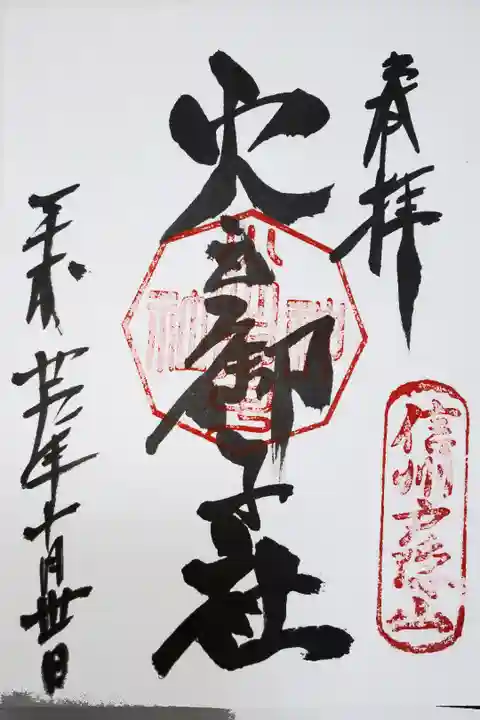 奉拝
信州戸隠山
火之御子社
平成 年十月丗日